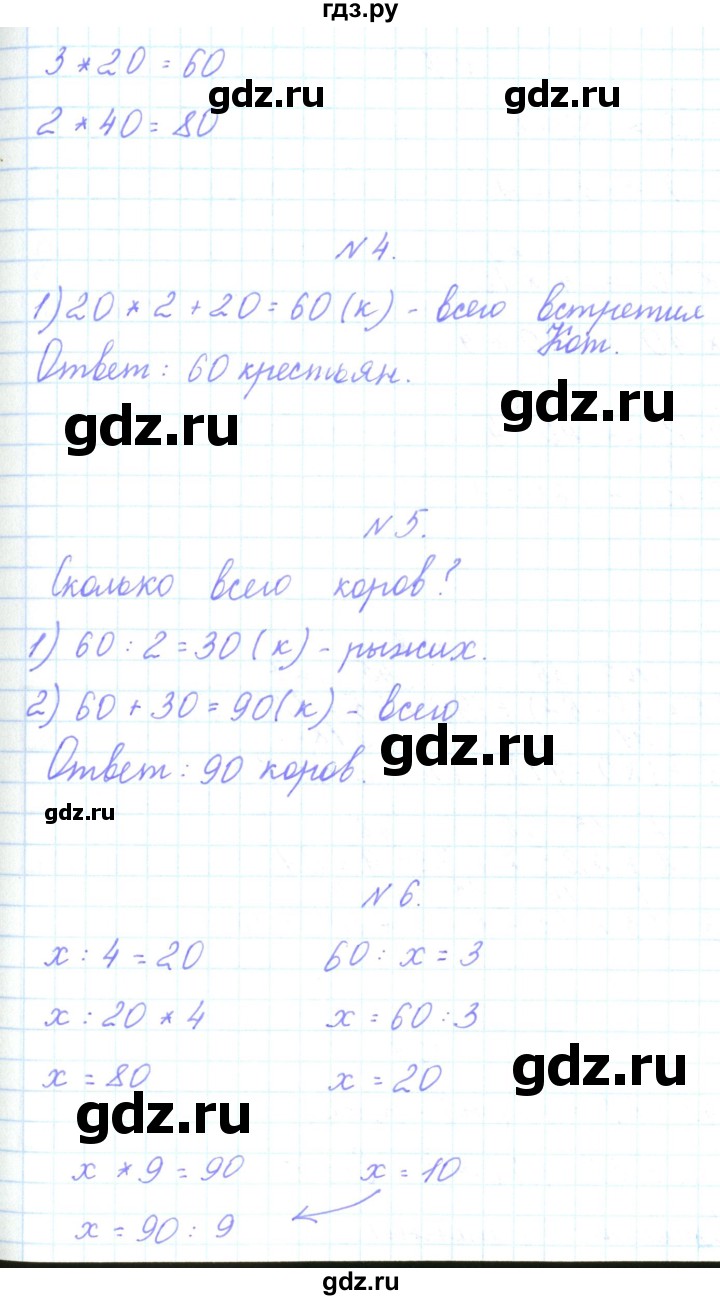 гдз.ру
3 * 20 = 60
gdz.ru gdz.ru
2 * 40 = 80
N 4.
1) 20 * 2 + 20 = 60 (к) - всего встретил
Кот.
Ответ: 60 крестьян.
gdz.ru gdz.ru
N 5.
Сколько всего коров?
1) 60 : 2 = 30 (к) - рыжих.
2) 60 + 30 = 90 (к) - всего
gdz.ru
Ответ: 90 коров.
gdz.ru
N 6.
x : 4 = 20 60 : x = 3
x : 20 * 4 x = 60 : 3
gdz.ru
x = 80 x = 20
gdz.ru
x * 9 = 90 x = 10
x = 90 : 9
gdz.ru